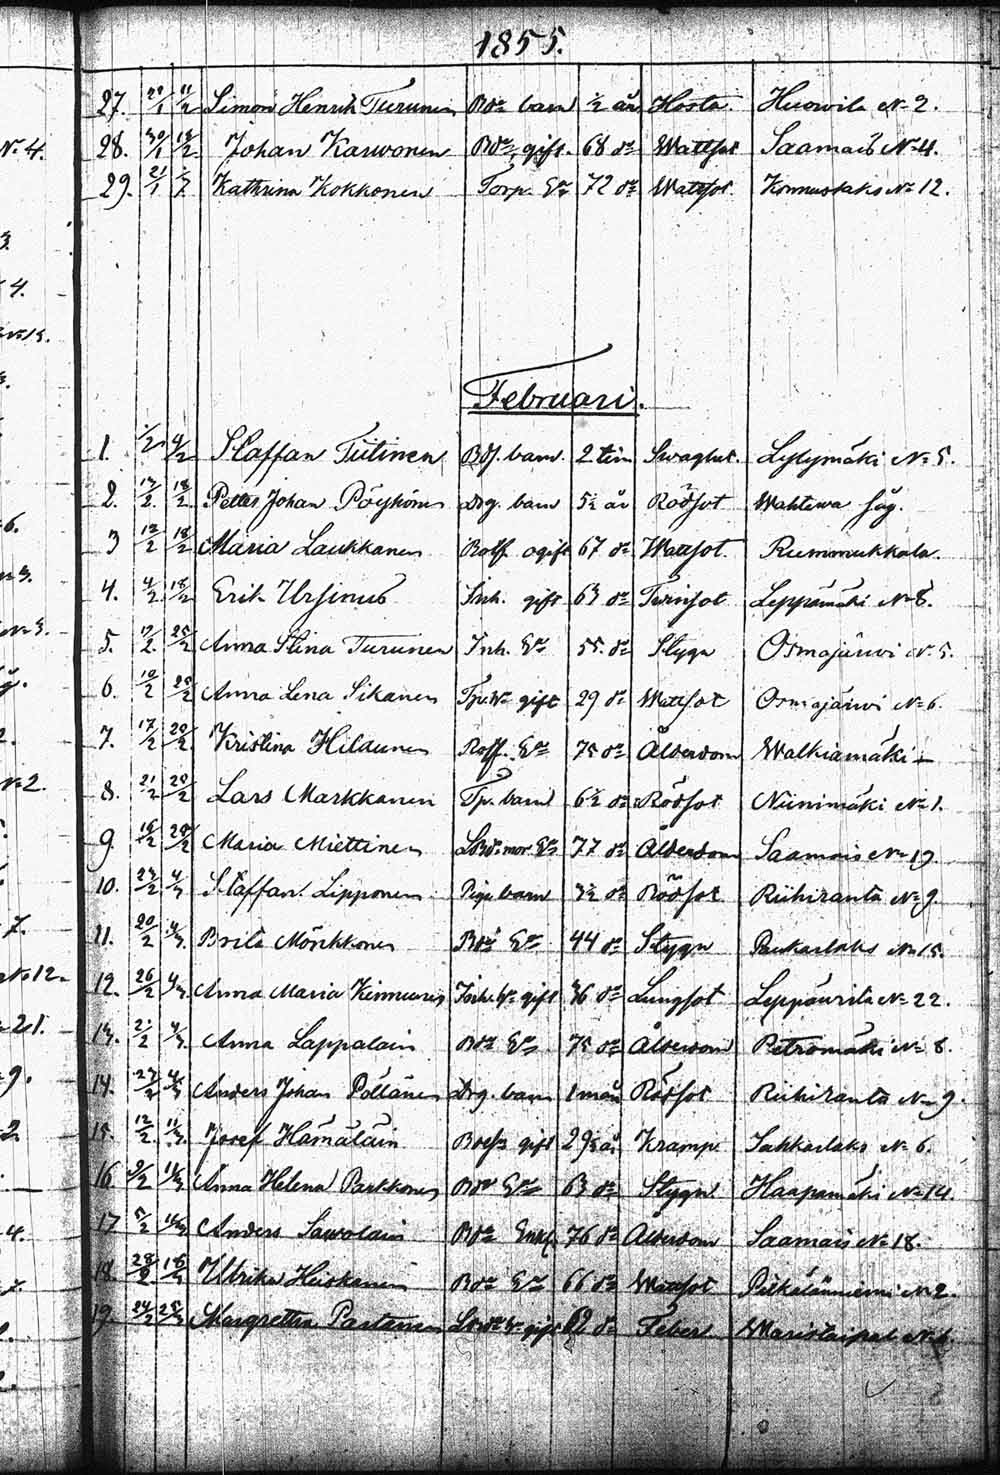 1855.
27. 29/1 11/2 Simon Henrik Turunen Bde barn ½ år Hosta. Huowila No 2.
28. 30/1 18/2 Johan Karwonen Bde gift. 68 do Wattsot Saamais No 4.
29. 21/1 Kathrina Kokkonen Torp. Ea 72 do Wattsot. Konnuslaks No 12.
Februari.
1. Staffan Tiitinen barn. 2 tim Swaghet. Lylymäki No 5.
2. 14/2 18/2 Petter Johan Pöyhönen Drg. barn 5½ år Rödsot Wahtewa
3 12/2 18/2 Maria Laukkanen ogift 67 do Wattsot. Rummukkala.
4. 4/2 18/2 Erik Ursinus Inh. gift 63 do Twinsot Leppämäki No 8.
5. 17/2 25/2 Anna Stina Turunen Inh. Ea 55. do Stygn Osmajärwi No 5.
6. 19/2 25/2 Anna Lena Sikanen gift 29 do Wattsot Osmajärwi No 6.
7. 17/2 Kristina Hiltunen Ea 75 do Ålderdom Walkiamäki
8. 21/2 Lars Markkanen Tp. barn 6½ do Rödsot Niinimäki No 1.
9 Maria Miettinen Ea 77 do Ålderdom Saamais No 19
10. 24/2 4/3 Staffan Lipponen Piga barn 3½ do Rödsot Riihiranta No 9.
11. 20/2 4/3. Brita Mönkkönen Bde Ea 44 do Stygn Paukarlaks No 15.
12. 26/2 4/3 Anna Maria Kinnunen Inh. gift 36 do Lungsot Leppäwirta No 22.
13. 21/2 4/3. Anna Lappalain Bde Ea 75 do Ålderdom Petromäki No 8.
14. 27/2 4/3 Anders Johan Pöllänen Drg. barn 1 mån Rödsot Riihiranta No 9.
15. 12/2 11/3. Josef Hämäläin gift 29½ år Kramp No 6.
16. 9/2 11/3 Anna Helena Parkkonen Bde Ea 63 do Stygn Haapamäki No 14.
17 5/2 Anders Sawolain Bde Enkl. 76 do Ålderdom Saamais No 18.
18. 28/2 18/3 Ulrika Heiskanen Bde Ea 66 do Wattsot Pilkälänniemi No 2.
19. 24/2 25/3 Margretha Partanen gift 62 do Feber